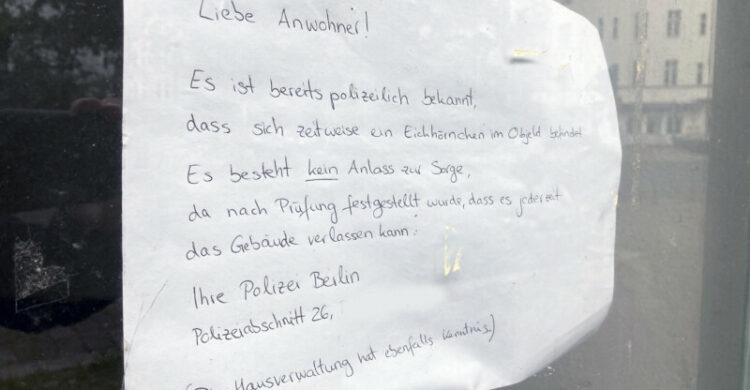 Liebe Anwohner!
Es ist bereits polizeilich bekannt,
dass sich zeitweise ein Eichhörnchen im Objekt befindet
Es besteht kein Anlass zur Sorge,
da nach Prüfung festgestellt wurde, dass es jederzeit
das Gebäude verlassen kann.
Ihre Polizei Berlin
Polizeiabschnitt 26,
Hausverwaltung hat ebenfalls Kenntnis)